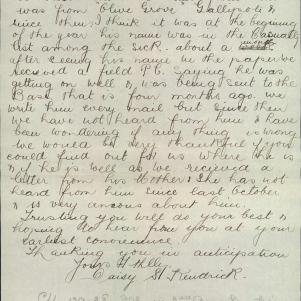 was from Olive Grove Gallipoli &
since then, I think it was at the beginning
of the year his name was in the Casualty
list among the sick. about a week
after seeing his name in the paper we
received a field P.C. saying he was
getting on well & was being sent to the
Base that is four months ago. we
write him every mail but since then
we have not heard from him & have
been wondering if any thing is wrong
we would be very thankful if you
could find out for us where he is
& if he is well as we recieved a
letter from his Mother & she has not
heard from him since last October
& is very anxious about him.
Trusting you will do your best &
hoping to hear from you at your
earliest convenience.
Thanking you in anticipation
Yours
Daisy St. Kendrick.